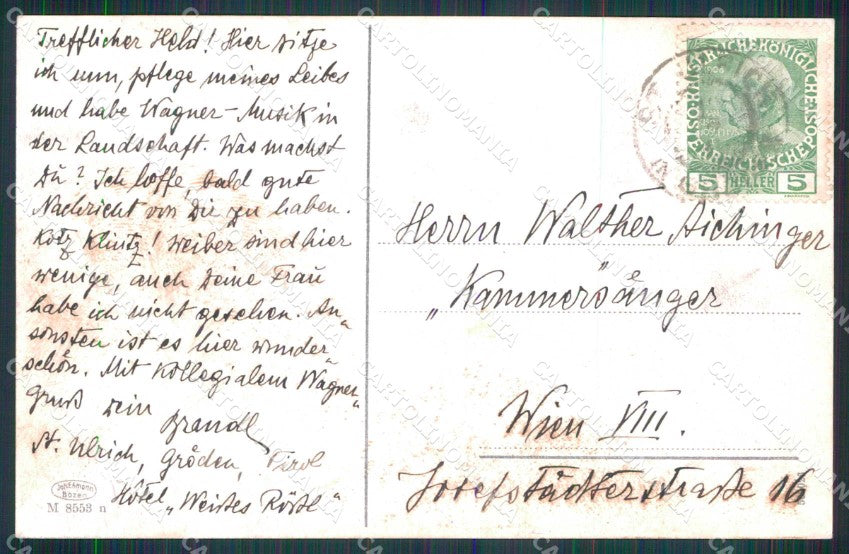 Trefflicher Held! Hier sitze
ich nun, pflege meines Leibes
und habe Wagner-Musik in
der Landschaft. Was machst
Du? Ich hoffe, bald gute
Nachricht von Dir zu haben.
Kotz Weiber sind hier
wenige, auch Deine Frau
habe ich nicht gesehen. An„
sonsten ist es hier wunder„
schön. Mit kollegialem Wagner„
Gruß Dein
Brandl
St. Ulrich, Gröden, Tirol
Hôtel „Weißes Rößl“
Bozen
M 8553 n
5 HELLER 5
Herrn Walther Aichinger
„Kammersänger
Wien VIII.
Josefstädterstraße 16
CARTOLINOMANIA